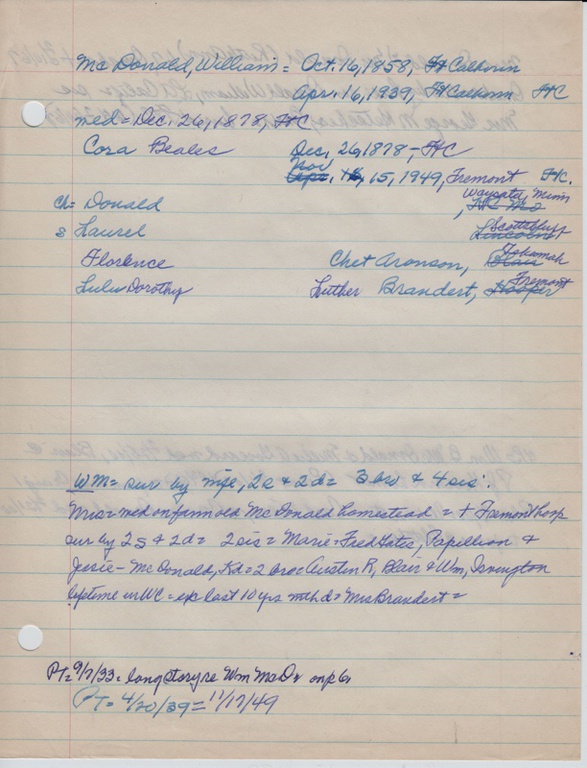 Mc Donald, William = Oct. 16, 1858, Ft Calhoun
Apr. 16, 1939, Ft Calhoun FtC
med = Dec. 26, 1878, FtC
Cora Beales Dec, 26, 1878 -, FtC
Nov
Apr. 15, 1949, Fremont FtC.
Wayzata, Minn
ch = Donald
Scottsbluff
s Laurel Lincoln
Tekamah
Florence Chet Aronson, Blair
Fremont
Lulu Dorothy Luther Brandert, Hooper
Wm = sur by wife, 2s & 2d = 3 bro & 4 sis.
Mrs = med on farm old McDonald homestead = + Fremont hosp
sur by 2s & 2d = 2 sis = Marie = Fred Gates, Papillion &
Jessie - McDonald, Kd = 2 bro = Austin R, Blair & Wm, Isington
lifetime in WC = exp last 10 yrs with d = Mrs Brandert =
PT = 9/7/33 = long story re Wm McD on p 6
PT = 4/20/39 = 11/17/49